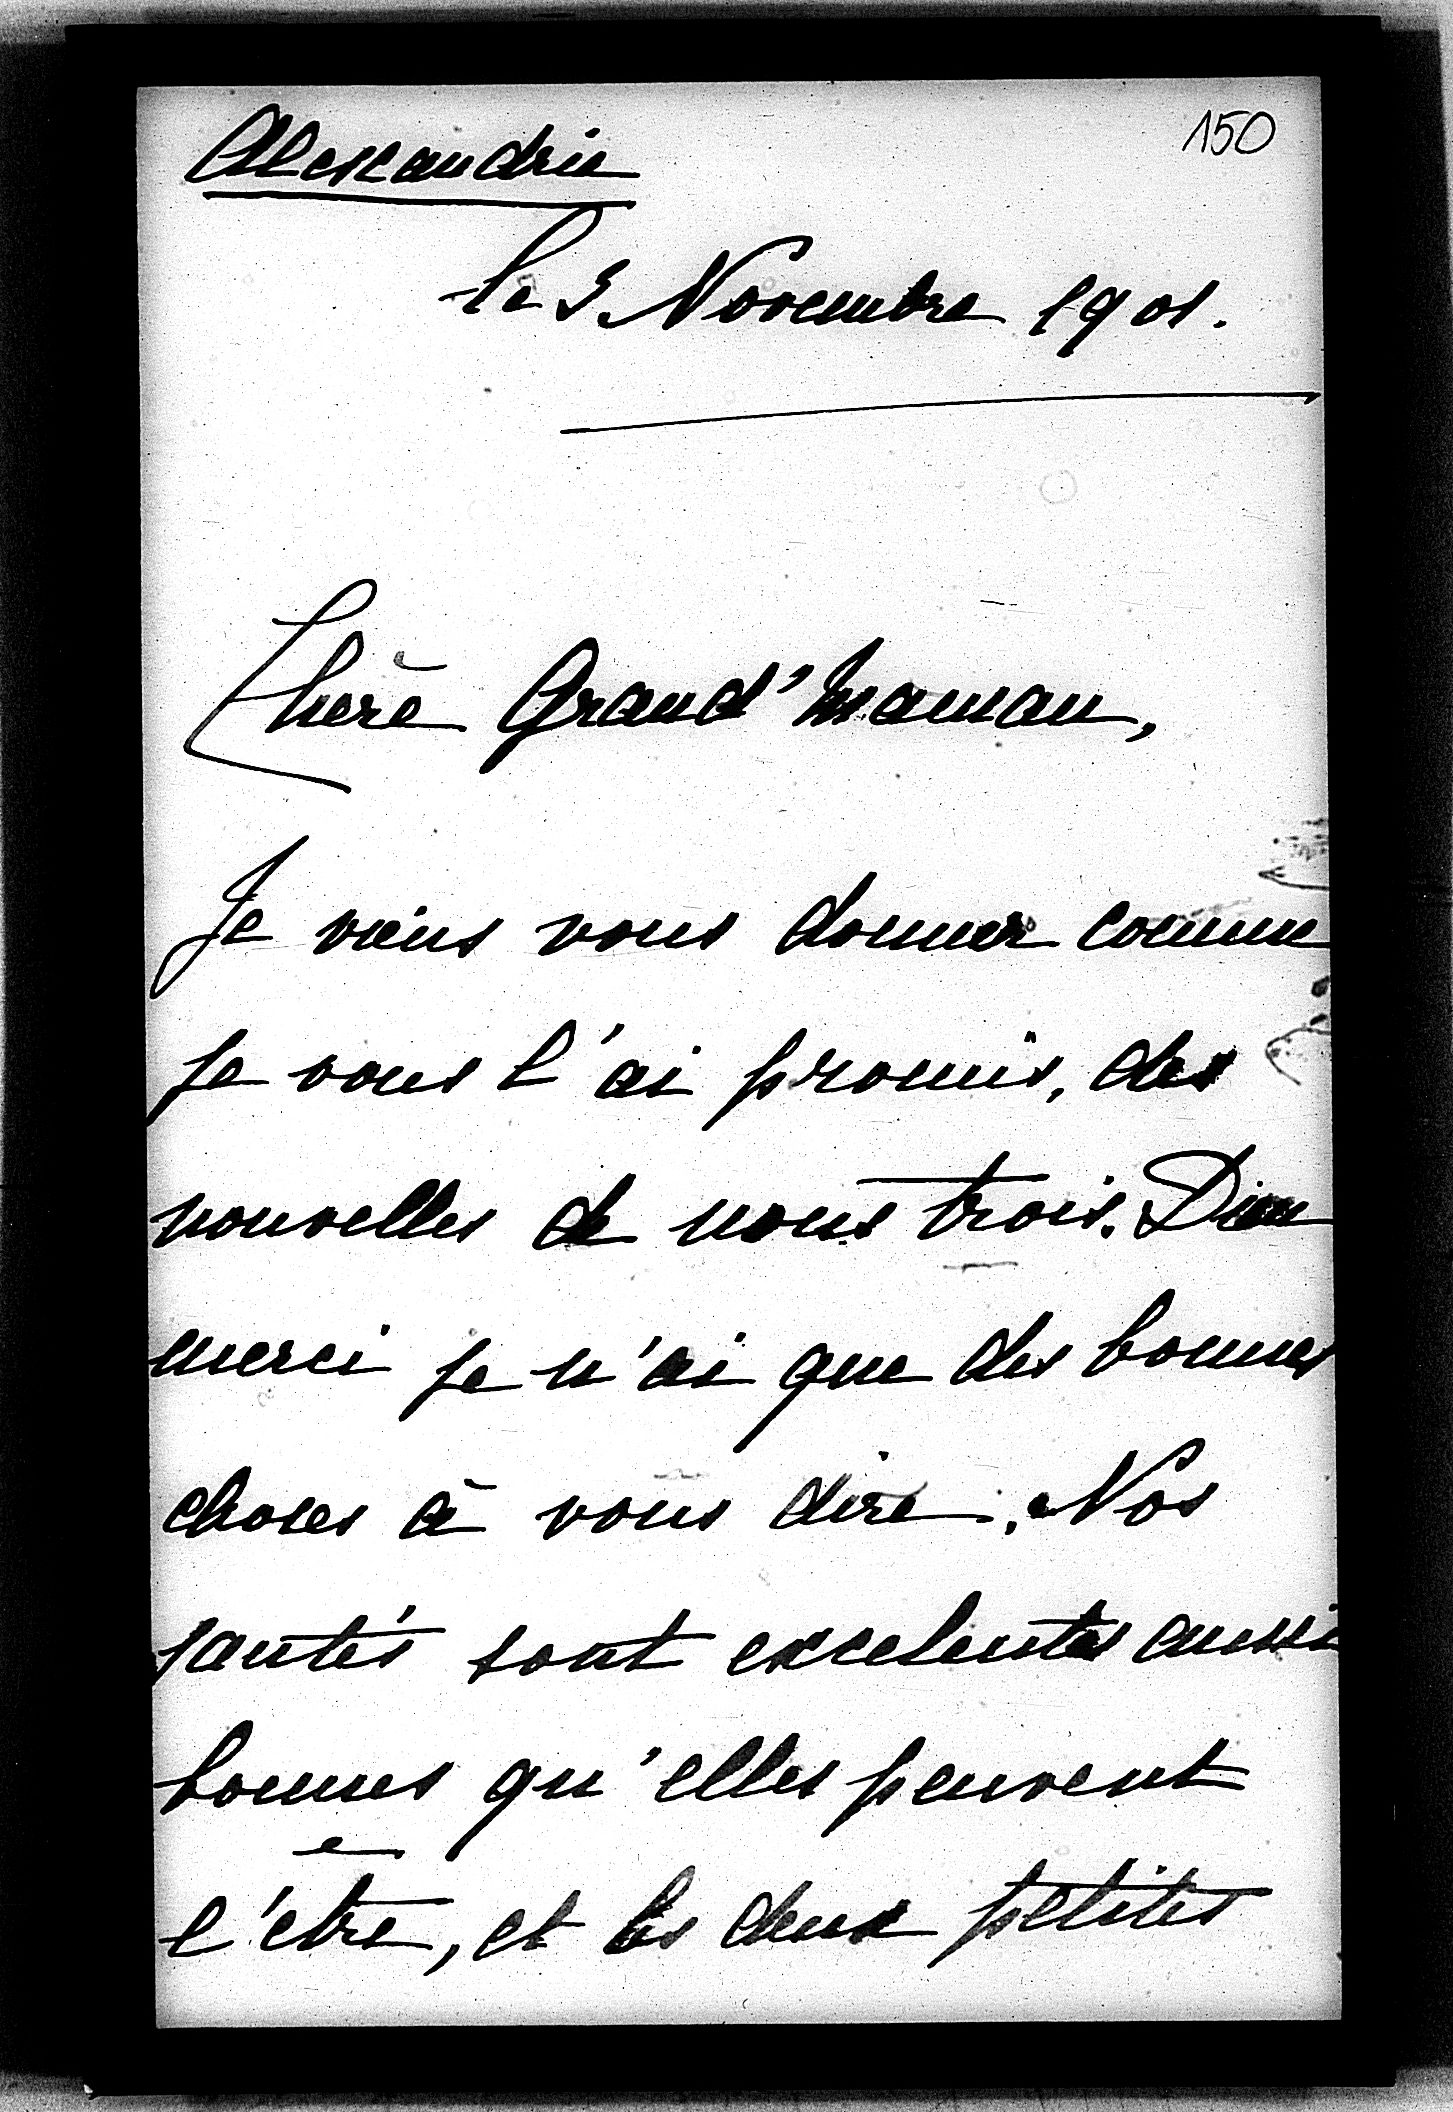 150
Alexandrie
le 3 Novembre 1901.
Chère Grand'Maman,
Je viens vous donner comme
je vous l'ai promis, des
nouvelles de nous trois. Dieu
merci je n'ai que des bonnes
choses à vous dire. Nos
santés sont excelentes aussi
bonnes qu'elles peuvent
l'être, et les deux petites